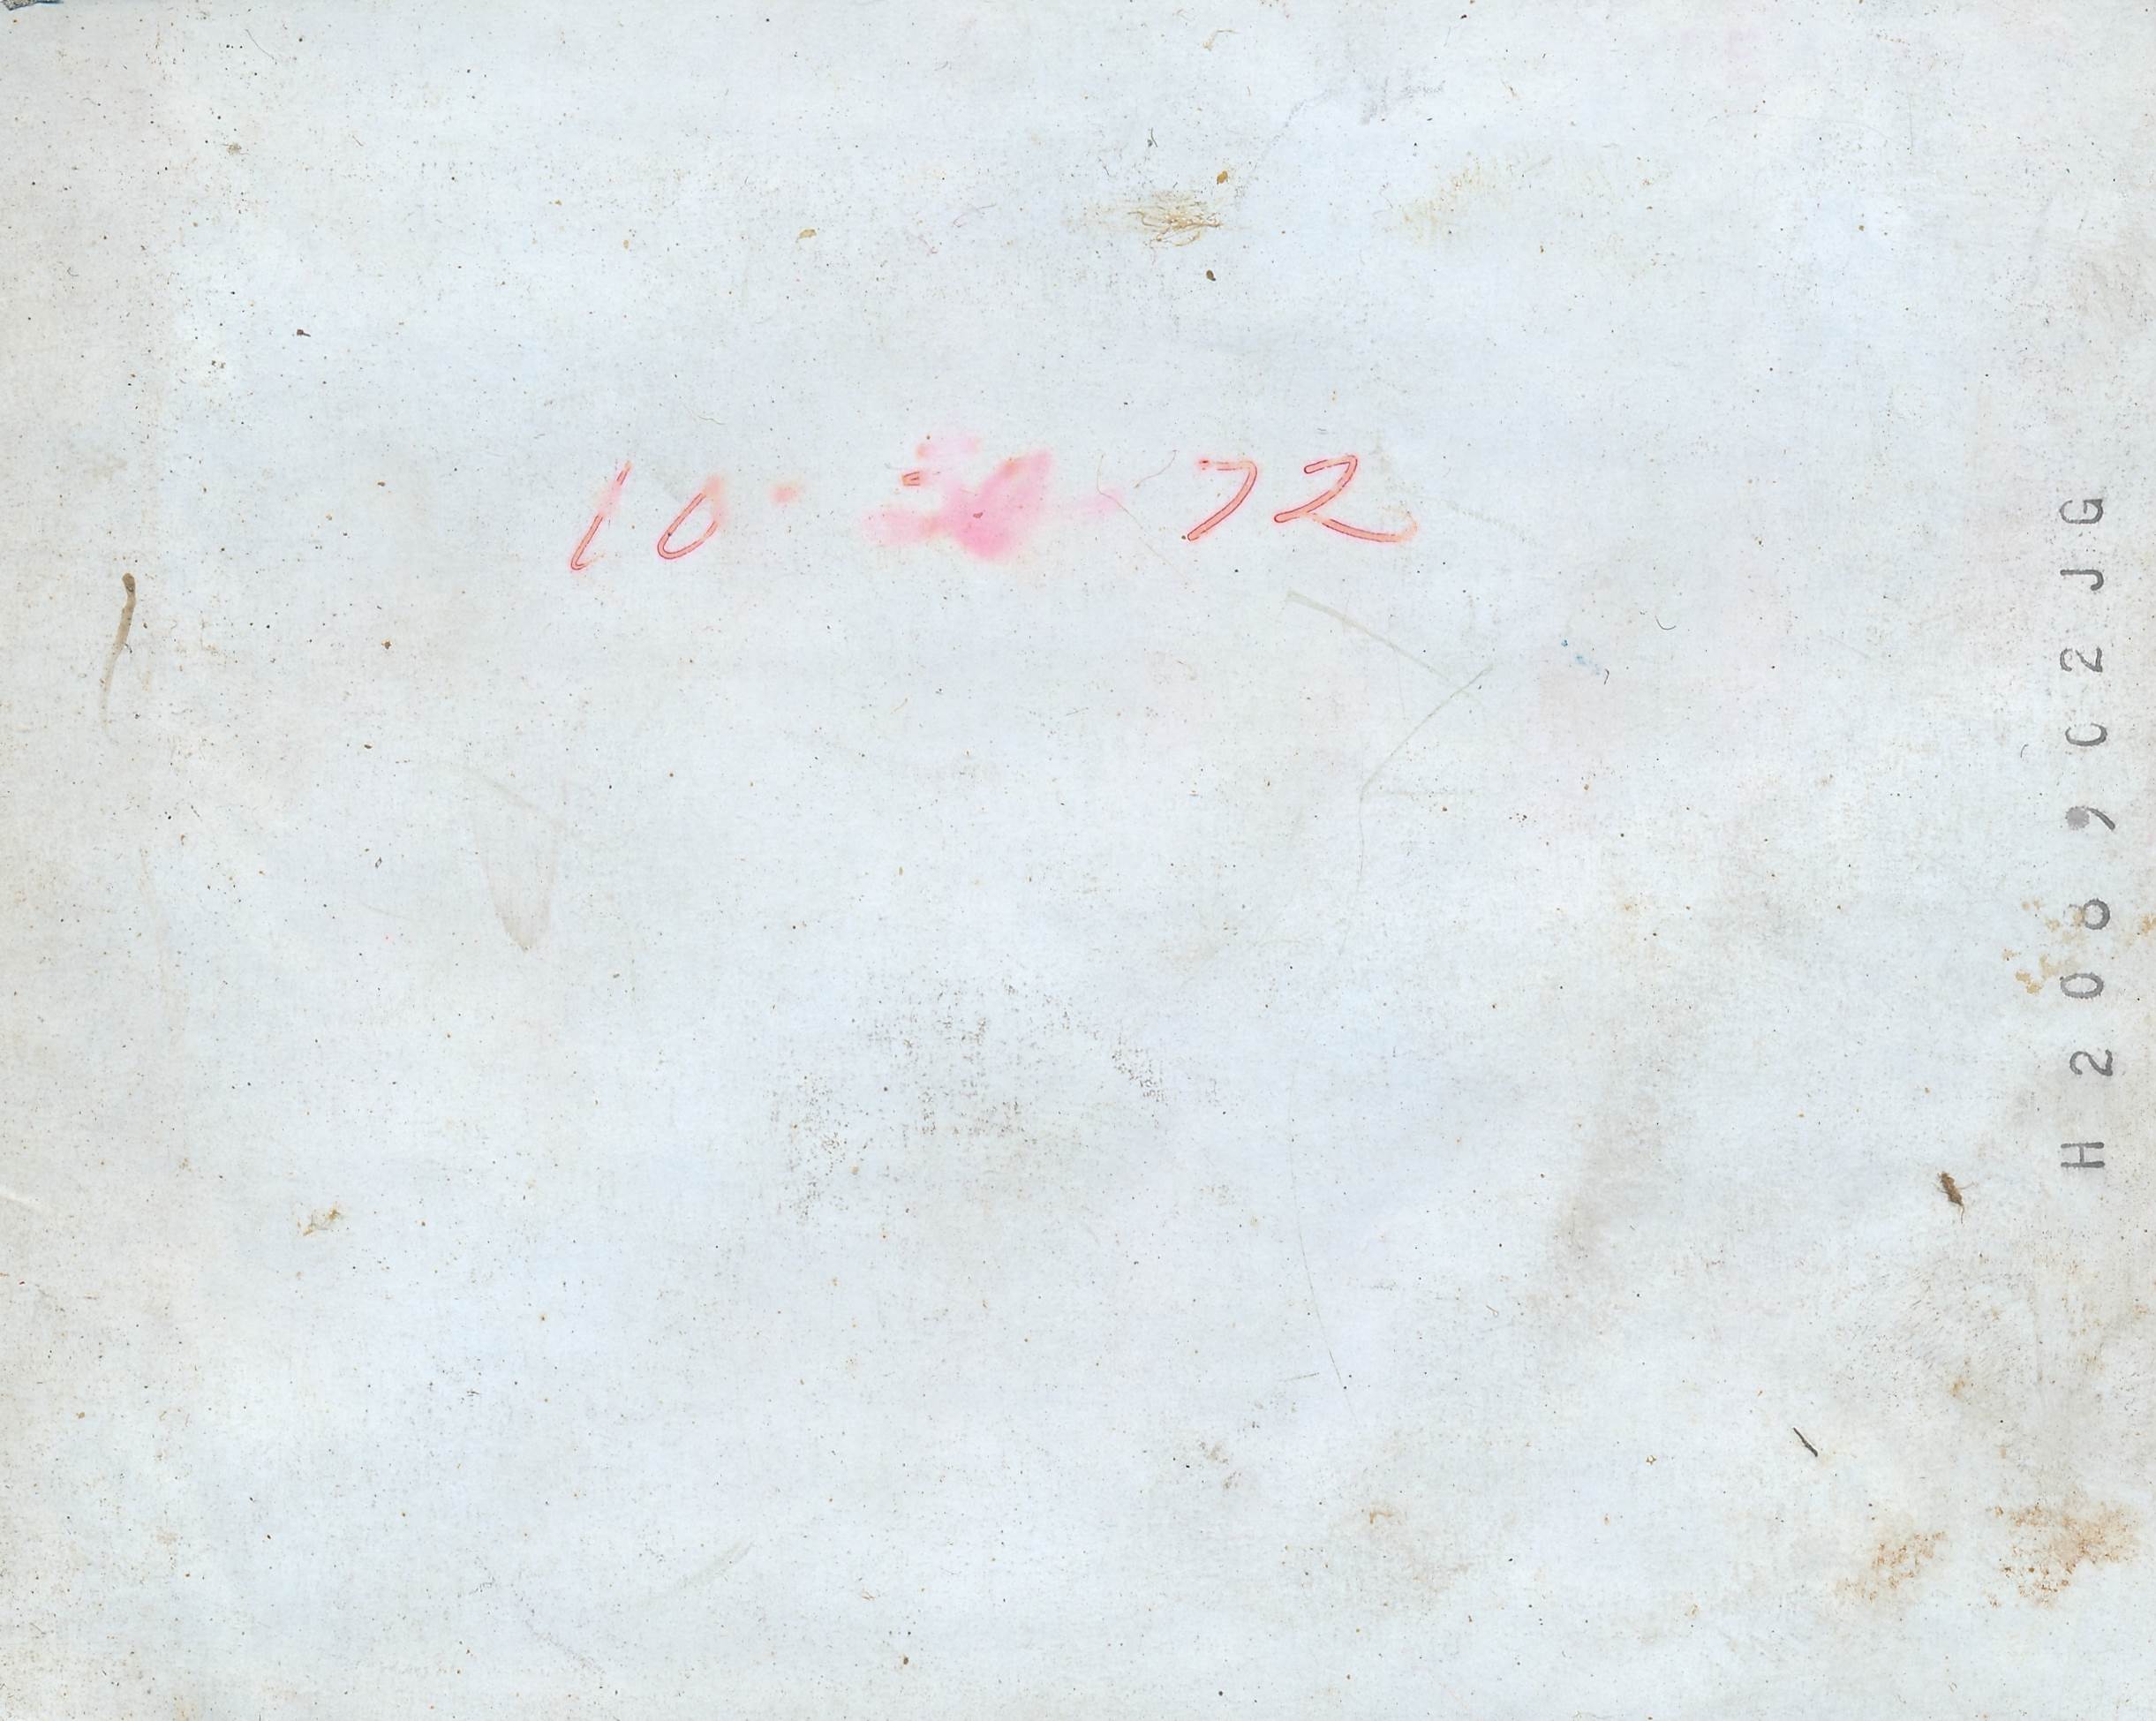 10- 72
H2089C2JG